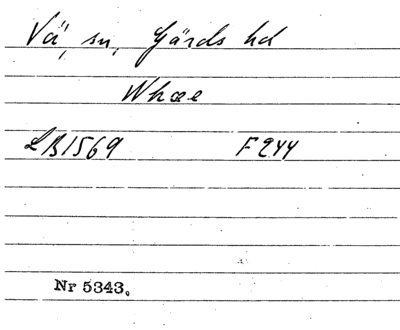 Vä, sn, Gärds hd
Whæe
LB1569 F244
Nr 5343.